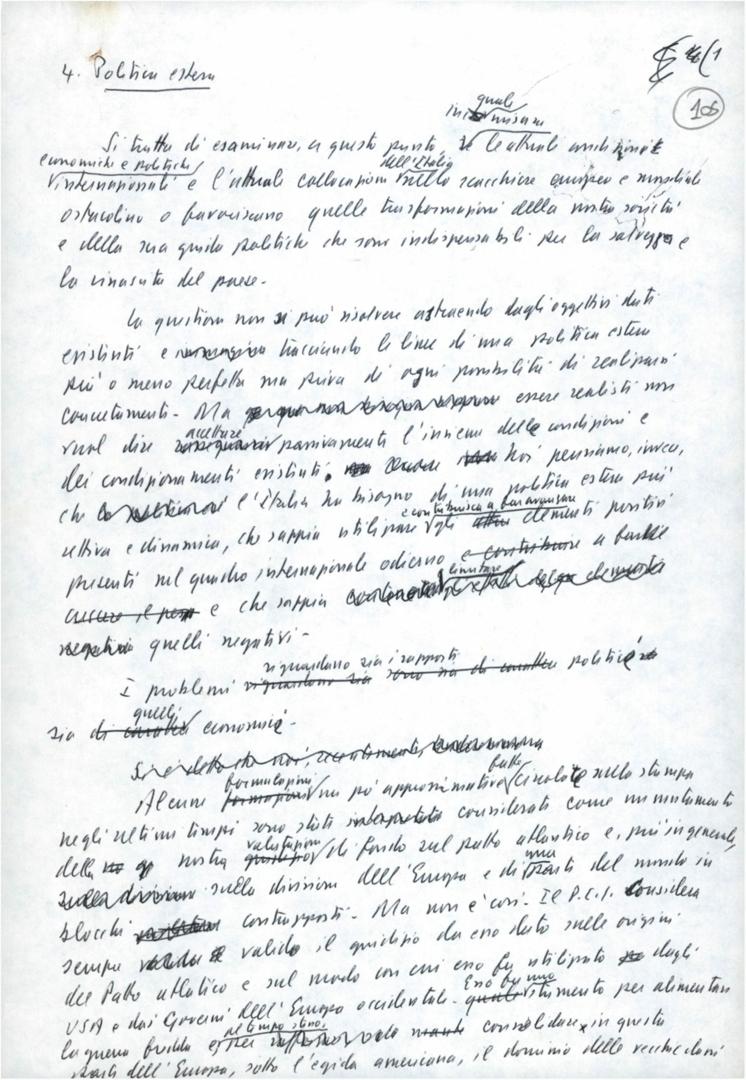 4. Politica estera
106
quale
misura
Si tratta di esaminare, a questo punto, le attuali condizioni
economiche e politiche dell'Italia
internazionali e l'attuale collocazione nello scacchiere europeo e mondiale
ostacolino o favoriscano quelle trasformazioni della nostra società
e della sua guida politica che sono indispensabili per la salvezza e
la rinascita del paese.
La questione non si può risolvere astraendo dagli oggettivi dati
esistenti e tracciando le linee di una politica estera
più o meno perfetta ma priva di ogni possibilità di realizzarsi
concretamente. Ma essere realisti non
accettare
vuol dire passivamente l'insieme delle condizioni e
dei condizionamenti esistenti. Noi pensiamo, invece,
che l'Italia ha bisogno di una politica estera più
e contribuisca a far avanzare
attiva e dinamica, che sappia utilizzare gli elementi positivi
presenti nel quadro internazionale odierno
limitare
e che sappia
quelli negativi.
riguardano sia i rapporti
I problemi politici
quelli
sia economici.
formulazioni fatte
Alcune un po' approssimative circolare sulla stampa
negli ultimi tempi sono state considerate come un mutamento
valutazione
della nostra di fondo sul patto atlantico e, più in generale,
una
sulla divisione dell'Europa e di parti del mondo in
blocchi contrapposti. Ma non è così. Il P.C.I. considera
sempre valido il giudizio da esso dato sulle origini
del Patto atlantico e sul modo con cui esso fu utilizzato dagli
Esso fu uno
USA e dai Governi dell'Europa occidentale. strumento per alimentare
al tempo stesso,
la guerra fredda e per consolidare, in questa
parte dell'Europa, sotto l'egida americana, il dominio delle vecchie classi